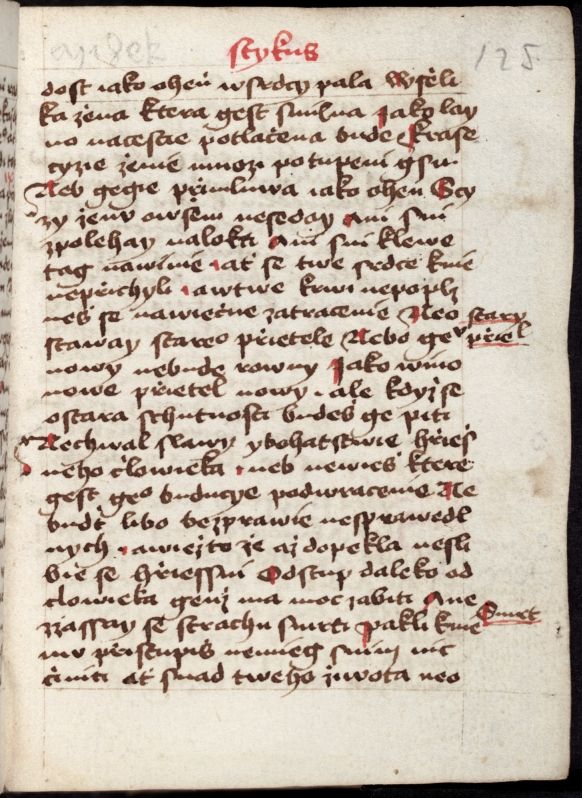 stykus
125
dost iako oheň wsrdcy pala Wsseli
ka žena ktera gest smilna Jako lay
no nacestie potlačena bude Krase
cyzie ženie mnozi potupeni gsu
Neb gegie přimluwa iako oheň Scy
zy ženu owsem neseday Ani s ni
zpolehay nalokti Ani s ni klewe
tag nawinie at se twe srdce knie
neprichyli awtwe krwi nepoplz
neš se nawiečne zatracenie Neo
stary
staway stareo přietele Nebo geu
přiel
nowy nebude rowny Jako wino
nowe přietel nowy ale kdyz se
ostara schutnosti budeš ge piti
Nechwal slawy ybohatstwie hřieš
neho člowieka neb newieš ktere
gest geo buducye podwracenie Ne
bud't libo bezprawie nesprawedl
nych awiezto že až dopekla nesli
bie se hřiessni Odstup daleko od
člowieka genž ma moc zabiti Ane
Smrt
zzassay se strachu smrti Pakli knie
mu přistupiš nemieg s nim nic
činiti at snad tweho žiwota neo